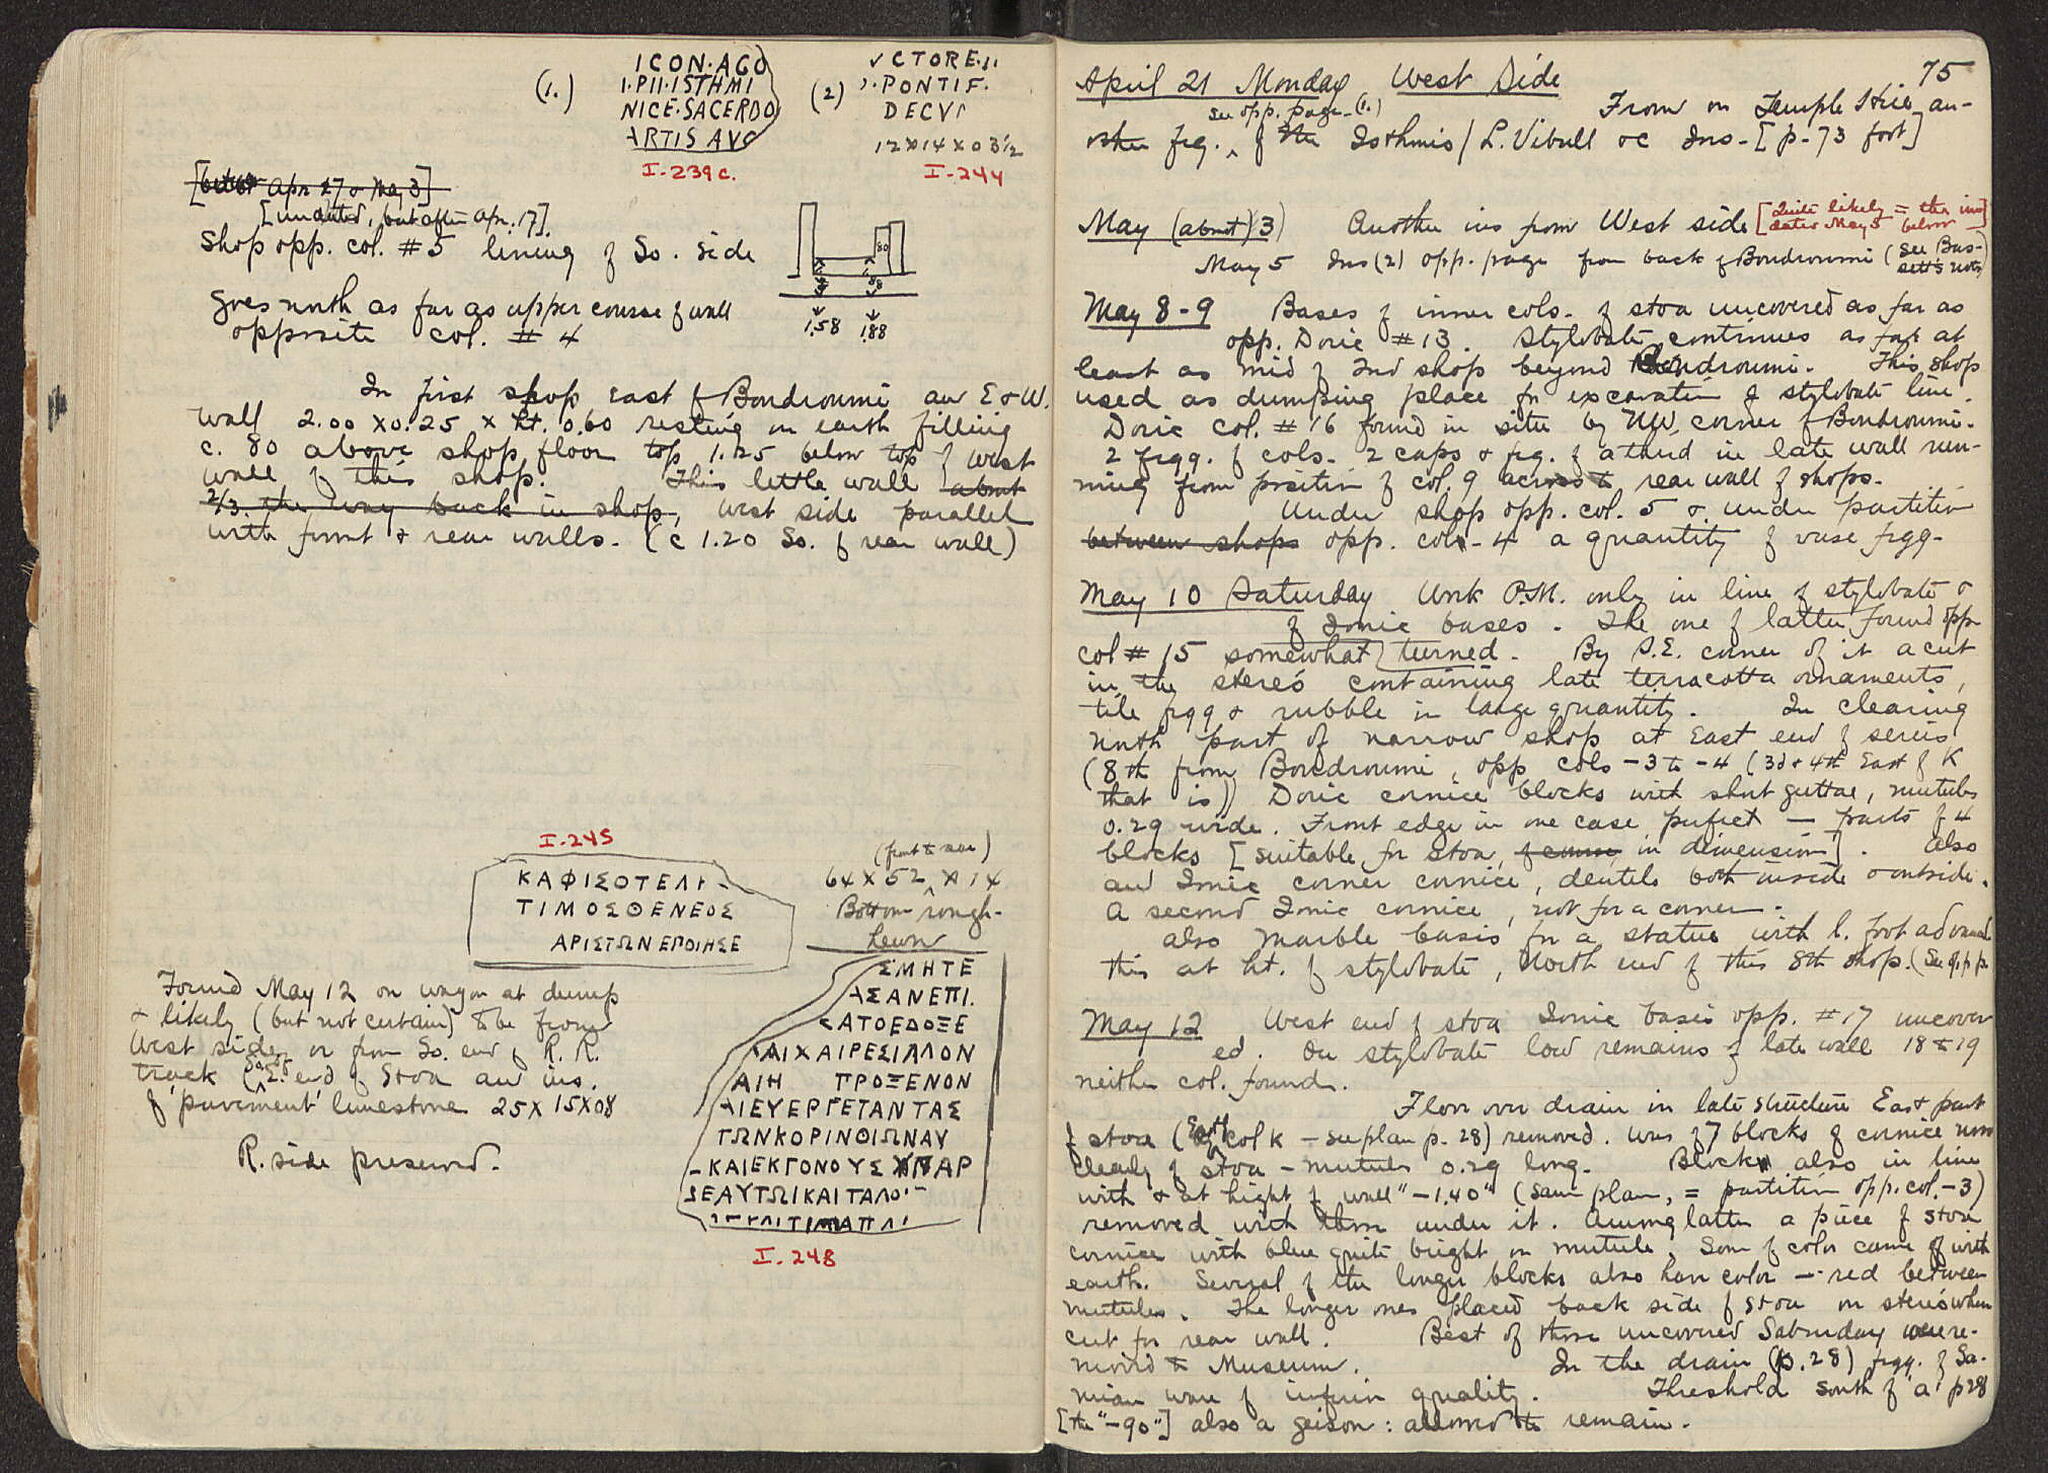 (1.)
ICON·AGO
I·PII·ISTHMI
NICE·SACERDO
ARTIS AVG
I-239c.
(2)
CTORE
PONTIF.
DECVR
12 x 14 x 0 3½
I-244
Apr 27 & May 3]
[undated, but after Apr. 17].
Shop opp. col. #5 lining of So. side
goes north as far as upper course of wall
opposite col. #4
80
1.58 1.88
In first shop East of Boudroumi an E & W.
wall 2.00 x 0.25 x ht. 0.60 resting on earth filling
c. 80 above shop floor top 1.25 below top of west
wall of this shop. This little wall about
2/3 the way back in shop, west side parallel
with front & rear walls. (c 1.20 So. of rear wall)
I-245
ΚΑΦΙΣΟΤΕΛ
ΤΙΜΟΣΘΕΝΕΟΣ
ΑΡΙΣΤΩΝΕΠΟΙΗΣΕ
(front to rear)
64 x 52 x 14
Bottom rough-
hewn
Found May 12 on wagon at dump
& likely (but not certain) to be from
West side or from So. end of R. R.
track (So. E. end of Stoa an ins.
of 'pavement' limestone 25 x 15 x 08
R. side preserved.
ΣΜΗΤΕ
ΑΣΑΝΕΠΙ.
ΑΤΟΕΔΟΞΕ
ΑΙΧΑΙΡΕΣΙΛΛΟΝ
ΑΙΗ ΠΡΟΞΕΝΟΝ
ΑΙΕΥΕΡΓΕΤΑΝΤΑΣ
ΤΩΝΚΟΡΙΝΘΙΩΝΑΥ
ΚΑΙΕΚΓΟΝΟΥΣ ΥΠΑΡ
ΣΕΑΥΤΩΙΚΑΙΤΑΛΟΙ
I-248
75
April 21 Monday West Side
From on Temple Hill, an-
see opp. page (1.)
other frg. of the Isthmis / L. Vibull oc Ins- [p-73 foot]
May (about) 3) Another ins from West side [Quite likely = the ins]
dated May 5 below
May 5 Ins (2) opp. page from back of Boudroumi (see Bas-
sett's note)
May 8-9 Bases of inner cols. of stoa uncovered as far as
opp. Doric #13. Stylobate continues as far at
least as mid of 2nd shop beyond Boudroumi. This shop
used as dumping place for excavation of stylobate line.
Doric Col. #16 found in situ by NW. corner of Boudroumi.
2 frgg. of cols. 2 caps & frg. of a third in late wall run-
ning from position of col. 9 across to rear wall of shops.
Under shop opp. col. 5 & under partition
between shops opp. col. -4 a quantity of vase frgg.
May 10 Saturday Work P.M. only in line of stylobate &
of Ionic bases. The one of latter found opp
col #15 somewhat turned. By S.E. corner of it a cut
in the stereó containing late terracotta ornaments,
tile frgg & rubble in large quantity. In clearing
north part of narrow shop at East end of series
(8th from Boudroumi, opp cols -3 to -4 (3d & 4th East of K
that is)) Doric cornice blocks with short guttae, mutules
0.29 wide. Front edge in one case perfect — parts of 4
blocks [suitable for stoa, of course, in dimension]. Also
an Ionic corner cornice, dentels both inside & outside.
A second Ionic cornice, not for a corner.
Also marble basis for a statue with l. foot advanced
this at ht. of stylobate, North end of this 8th shop. (See opp p.
May 12 West end of stoa Ionic basis opp. #17 uncover
ed. On stylobate low remains of late wall 18 to 19
neither col. found.
Floor over drain in late structure East part
of stoa (East of col K — see plan p. 28) removed. Was of 7 blocks of cornice
clearly of stoa — mutules 0.29 long. Block also in line
with & at hight of wall "-1.40" (same plan, = partition opp. col. -3)
removed with those under it. Among latter a piece of stoa
cornice with blue quite bright on mutule. Some of color came off with
earth. Several of the longer blocks also have color — red between
mutules. The longer ones placed back side of stoa on stereó when
cut for rear wall. Best of those uncovered Saturday were re-
moved to Museum. In the drain (p. 28) frgg. of Sa-
mian ware of inferior quality. Threshold south of "a" p28
[the "-90"] also a geison: allowed to remain.